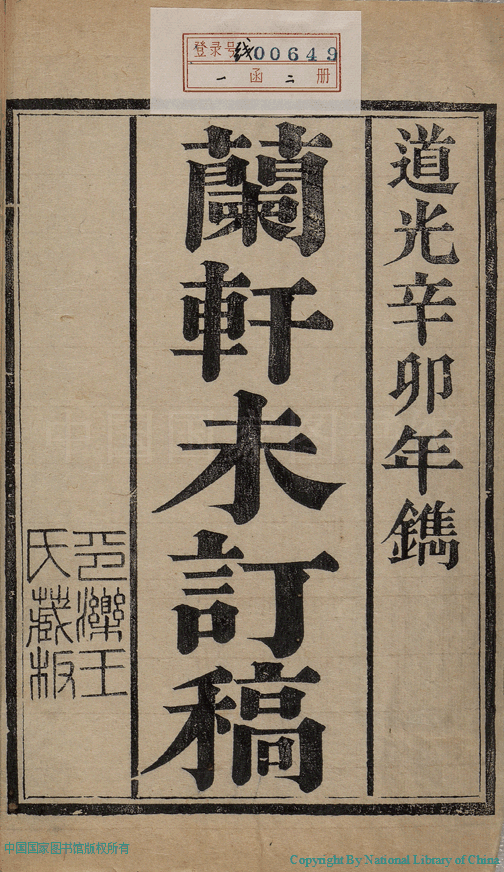 登录号 线00649
一 函 二 册
道光辛卯年鐫
蘭軒未訂稿
濼王
氏藏板
中国国家图书馆版权所有
Copyright By National Library of China